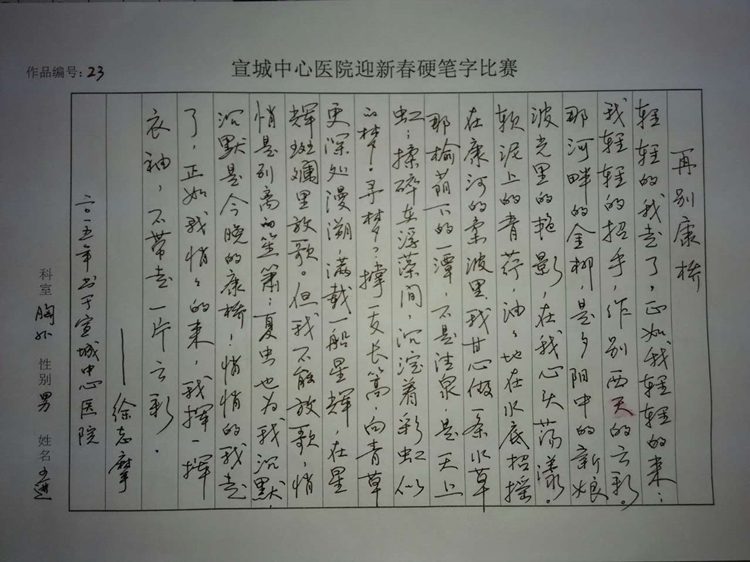 作品编号:23
宣城中心医院迎新春硬笔字比赛
再别康桥
轻轻的我走了，正如我轻轻的来；
我轻轻的招手，作别西天的云彩。
那河畔的金柳，是夕阳中的新娘
波光里的艳影，在我心头荡漾。
软泥上的青荇，油々地在水底招摇
在康河的柔波里我甘心做一条水草
那榆荫下的一潭，不是清泉，是天上
虹；揉碎在浮藻间，沉淀着彩虹似
的梦。寻梦？撑一支长篙，向青草
更深处漫溯，满载一船星辉，在星
辉斑斓里放歌。但我不能放歌，悄
悄是别离的笙箫；夏虫也为我沉默，
沉默是今晚的康桥！悄悄的我走
了，正如我悄々的来，我挥一挥
衣袖，不带走一片云彩。
——徐志摩
二〇一五年书于宣城中心医院
科室 胸外 性别 男 姓名